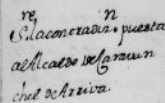 re n
Sila coneradin puesta
al Alcalde de Caravan
chel de Arriva.